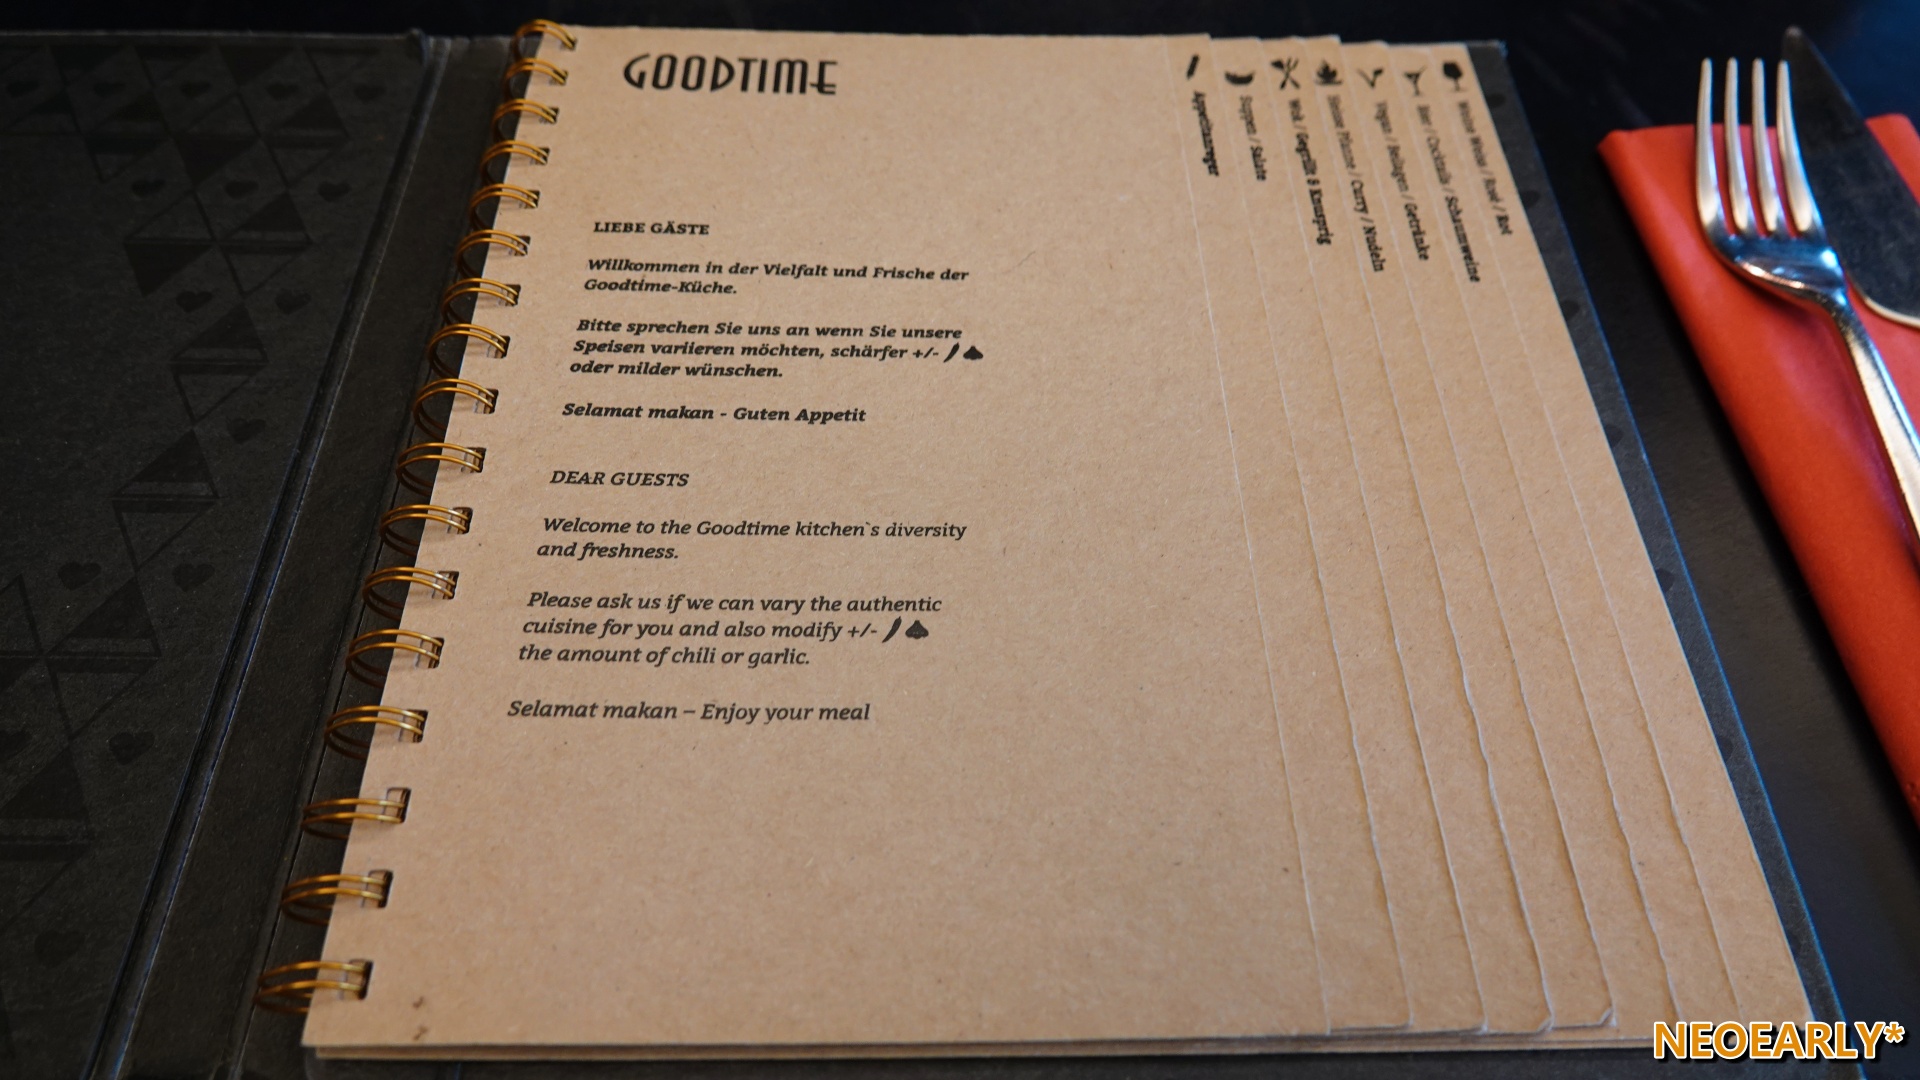 GOODTIME
LIEBE GÄSTE
Willkommen in der Vielfalt und Frische der
Goodtime-Küche.
Bitte sprechen Sie uns an wenn Sie unsere
Speisen variieren möchten, schärfer +/-
oder milder wünschen.
Selamat makan - Guten Appetit
DEAR GUESTS
Welcome to the Goodtime kitchen`s diversity
and freshness.
Please ask us if we can vary the authentic
cuisine for you and also modify +/-
the amount of chili or garlic.
Selamat makan – Enjoy your meal
Appetitanreger
Suppen / Salate
Wok / Gegrillt & Knusprig
Pfanne / Curry / Nudeln
Vegan / Beilagen / Getränke
Bier / Cocktails / Schaumweine
Weine Weiss / Rosé / Rot
NEOEARLY*